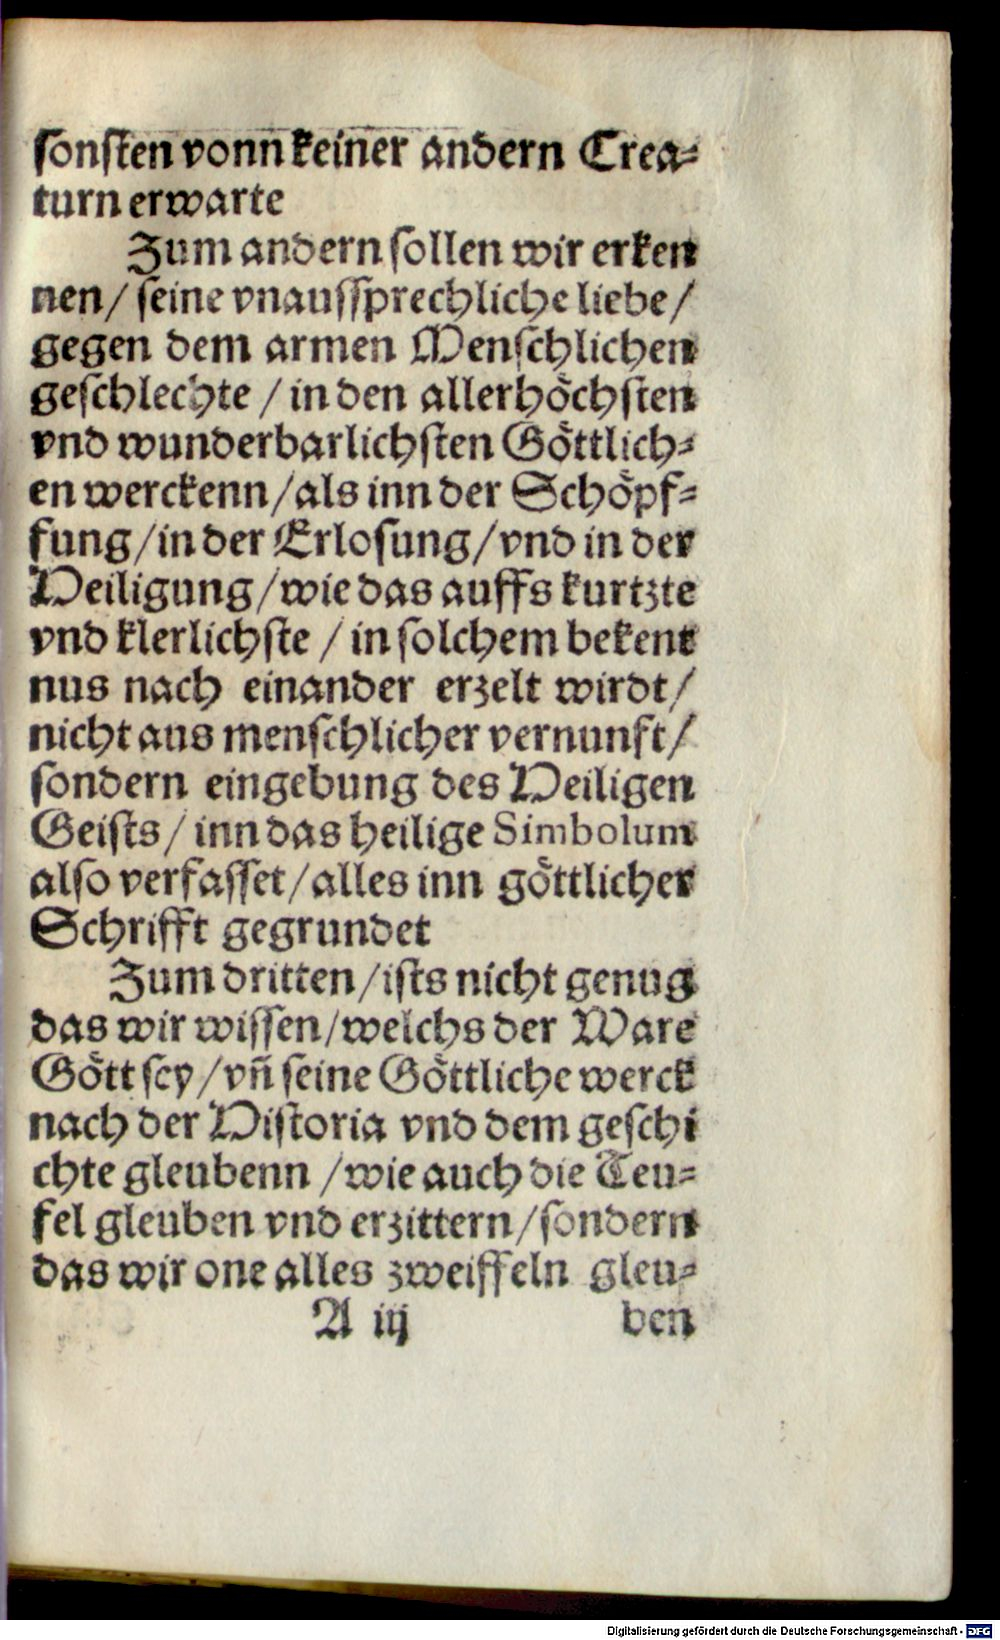 sonsten vonn keiner andern Crea⸗
turn erwarte
Zum andern sollen wir erken
nen/ seine vnaussprechliche liebe/
gegen dem armen Menschlichen
geschlechte / in den allerhöchsten
vnd wunderbarlichsten Göttlich⸗
en werckenn/als inn der Schöpf⸗
fung/in der Erlosung/vnd in der
Heiligung/wie das auffs kurtzte
vnd klerlichste / in solchem bekent
nus nach einander erzelt wirdt/
nicht aus menschlicher vernunft/
sondern eingebung des Heiligen
Geists/ inn das heilige Simbolum
also verfasset/alles inn göttlicher
Schrifft gegrundet
Zum dritten/ists nicht genug
das wir wissen/welchs der Ware
Gött sey/vñ seine Göttliche werck
nach der Historia vnd dem geschi
chte gleubenn /wie auch die Teu⸗
fel gleuben vnd erzittern/sondern
das wir one alles zweiffeln gleu⸗
A iij ben
Digitalisierung gefördert durch die Deutsche Forschungsgemeinschaft - DFG